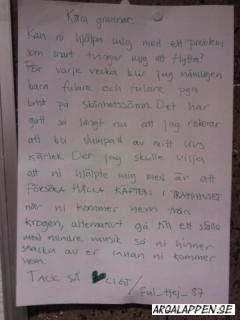 Kära grannar.
Kan ni hjälpa mig med ett problem,
som snart tvingar mig att flytta?
För varje vecka blir jag nämligen
bara fulare och fulare pga
brist på skönhetssömn. Det har
gått så långt nu att jag riskerar
att bli dumpad av mitt livs
kärlek. Det jag skulle vilja
att ni hjälpte mig med är att
FÖRSÖKA HÅLLA KÄFTEN I TRAPPHUSET
när ni kommer hem från
krogen, alternativt gå till ett ställe
med mindre musik så ni hinner
snacka av er innan ni kommer
hem.
TACK SÅ ♥LIGT
/Ful_tjej_87
ARGALAPPEN.SE